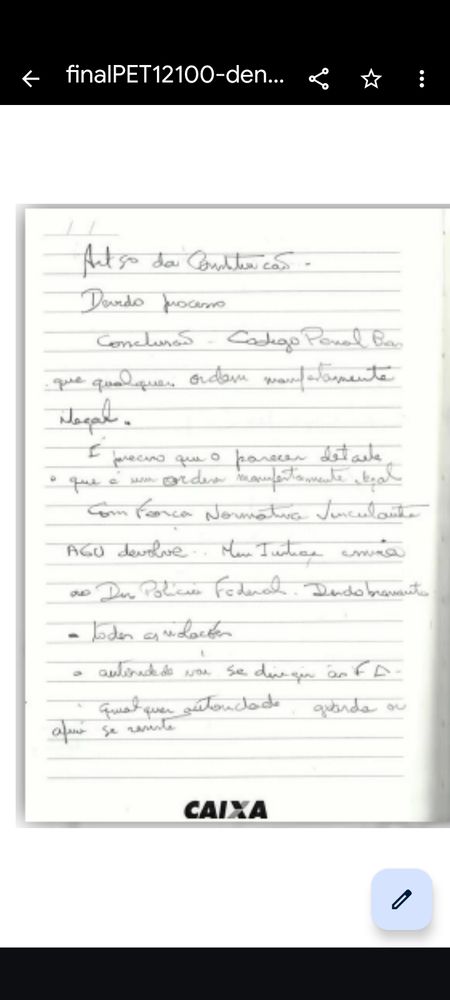 finalPET12100-den...
/ /
Artigo da Constituição -
Devido processo
Conclusão - Codigo Penal
que qualquer ordem manifestamente
ilegal.
É preciso que o parecer detalhe
o que é um ordem manifestamente ilegal
Com Força Normativa Vinculante
AGU devolve.. Min Justiça envia
ao Polícia Federal.
- todas as violações
autoridade vai se dirigir às
Qualquer autoridade, guarda ou
se
CAIXA